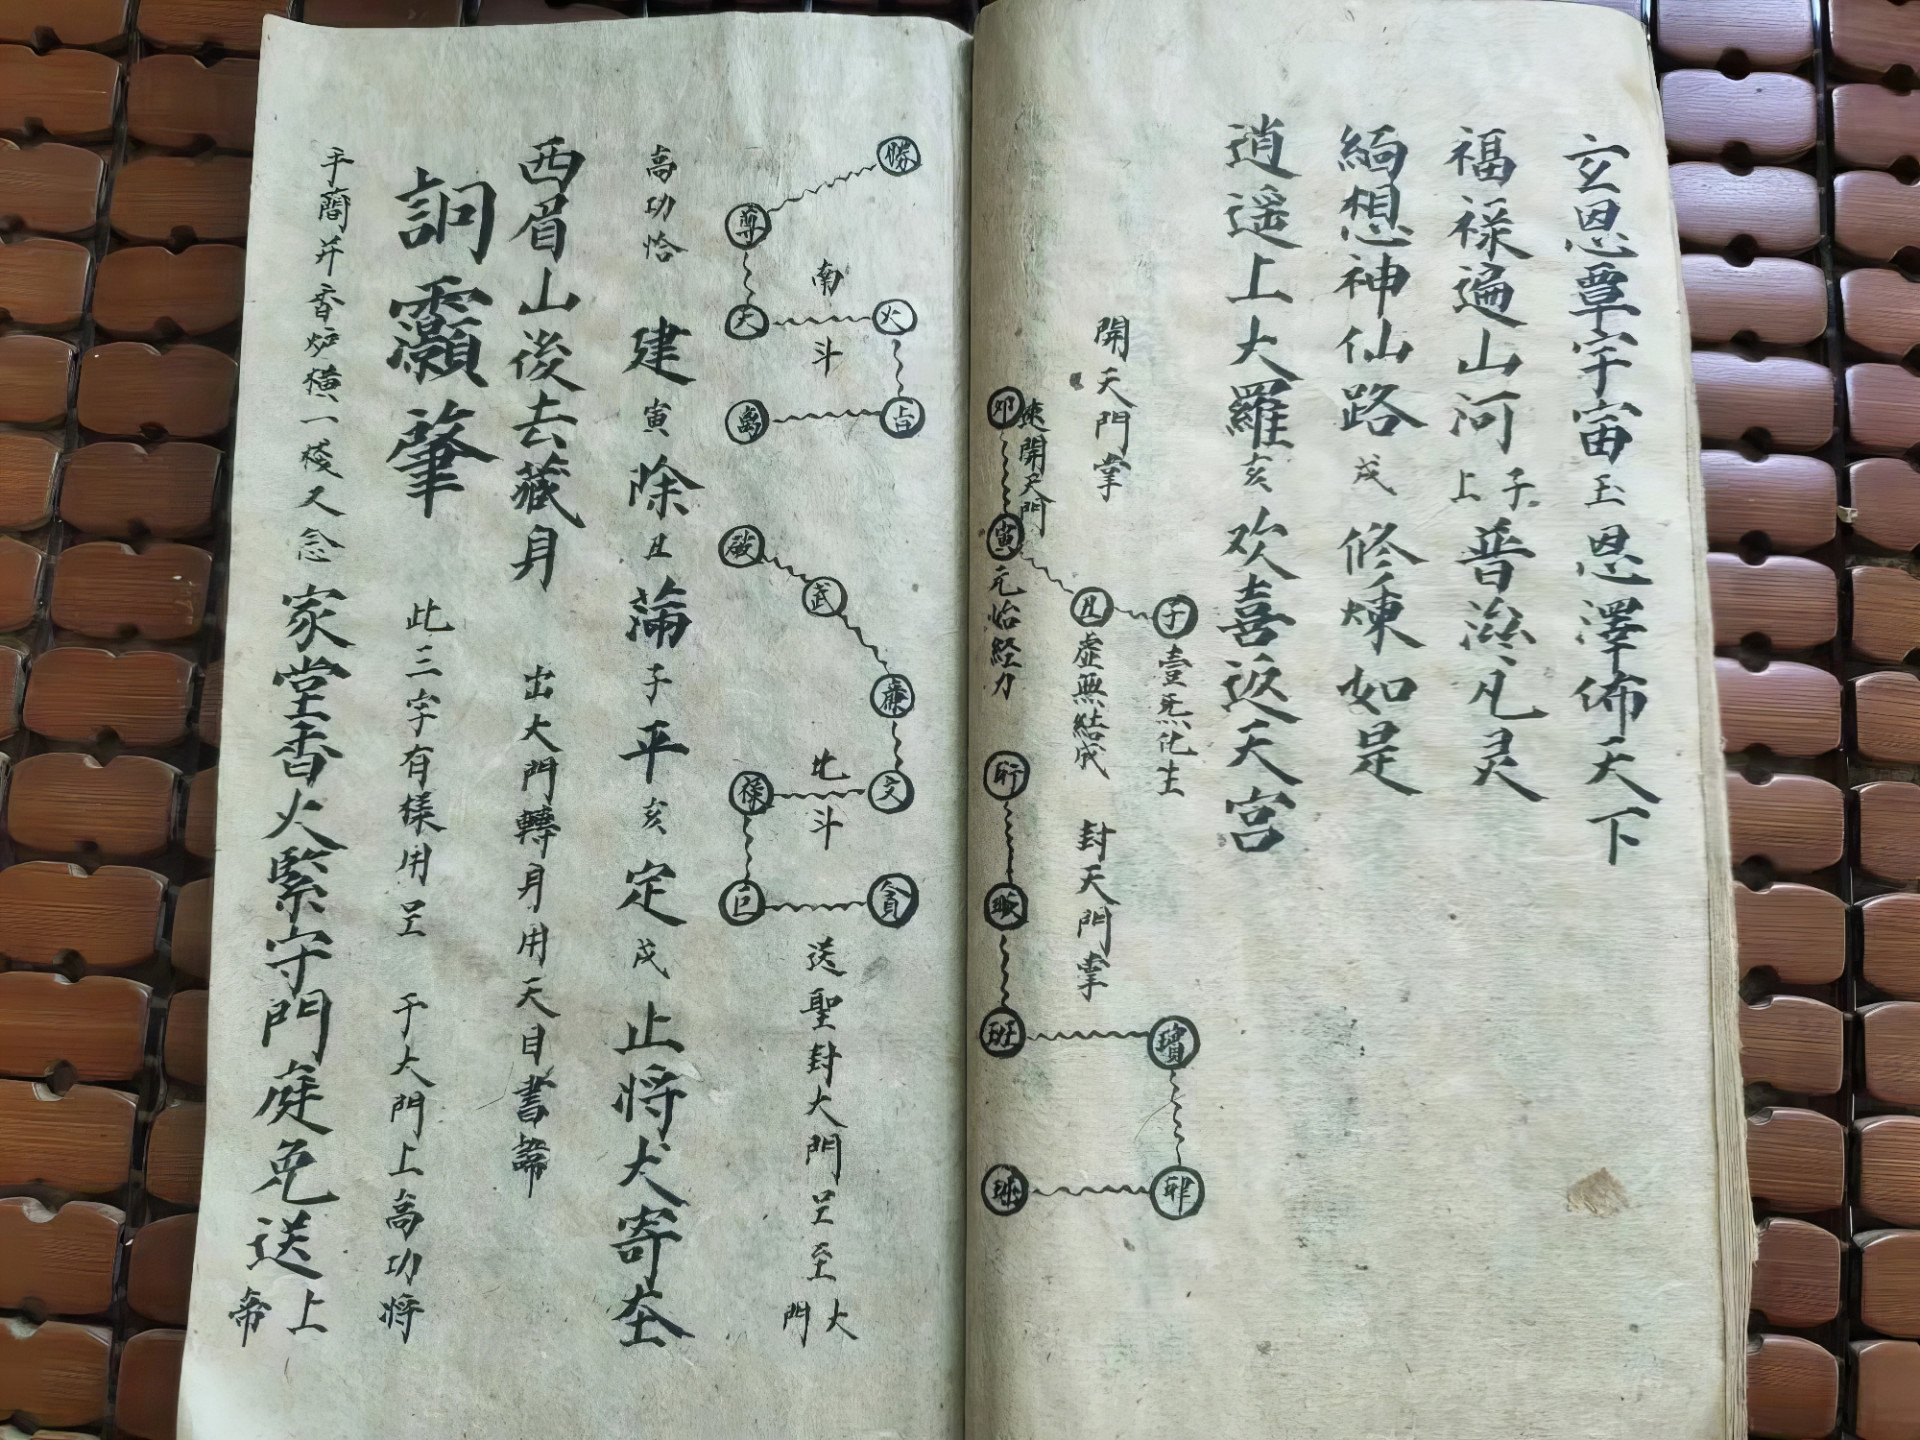 玄恩覃宇宙玉恩澤佈天下
福禄遍山河上子普滋凡灵
緬想神仙路戌修煉如是
逍遥上大羅亥欢喜返天宮
開天門掌
子
壹炁化生
丑
虚無結成
寅
元始経力
卯
速開天門
封天門掌
班
璸
南斗
勝
尊
天
火
占
北斗
破
武
廉
文
禄
巨
貪
送聖封大門呈至大門
高功恰 建寅除丑滿子平亥定戌止将犬寄在
西眉山後去藏身 出大門轉身用天目書諦
詗灝筆 此三字有樣用呈 于大門上高功将
手蕳并香炉横一棧又念家堂香火緊守門庭免送上帝